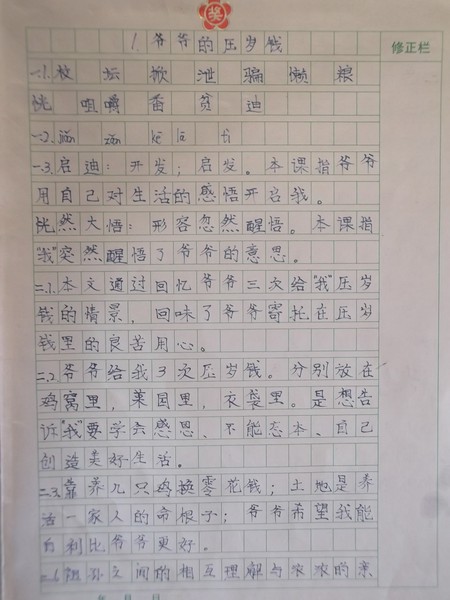 奖
1.爷爷的压岁钱
修正栏
一.1.枚 坛 掀 泄 骗 懒 粮
恍 咀嚼 番 贫 迪
一.2.
一.3.启迪:开发;启发。本课指爷爷
用自己对生活的感悟开启我。
恍然大悟:形容忽然醒悟。本课指
"我"突然醒悟了爷爷的意思。
二.1.本文通过回忆爷爷三次给"我"压岁
钱的情景,回味了爷爷寄托在压岁
钱里的良苦用心。
二.2.爷爷给我3次压岁钱。分别放在
鸡窝里,菜园里,衣袋里。是想告
诉"我"要学会感恩、不能忘本、自己
创造美好生活。
二.3.靠养几只鸡换零花钱;土地是养
活一家人的命根子;爷爷希望我能
有利比爷爷更好。
祖孙之间的相互理解与浓浓的亲
年 月 日